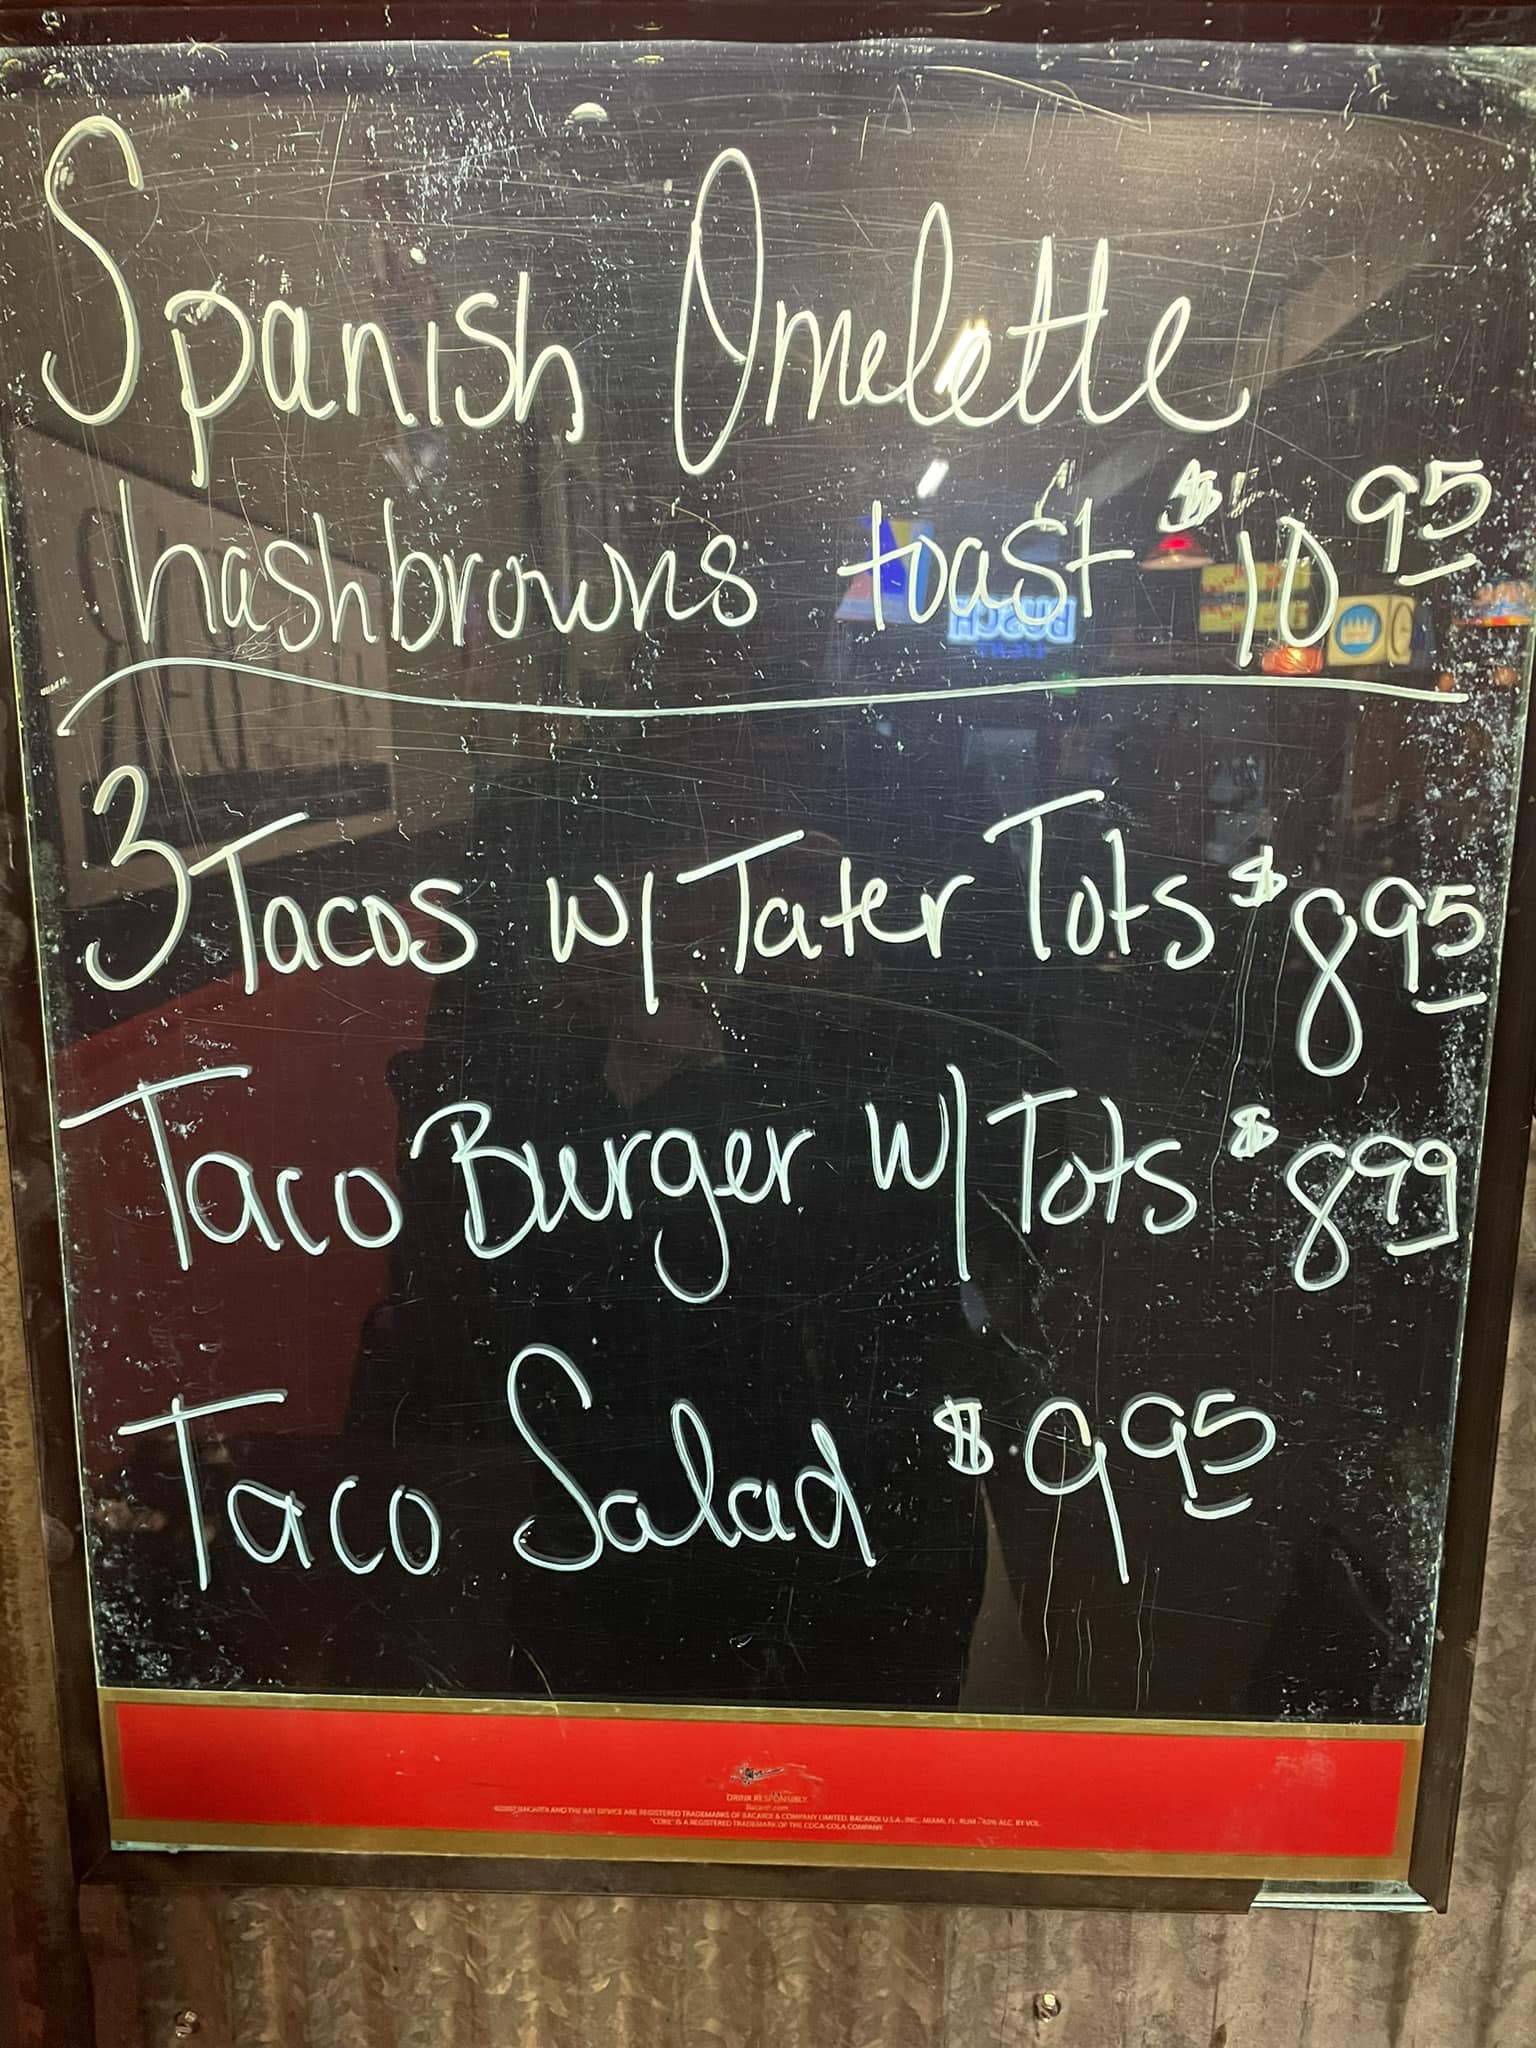 Spanish Omelette
hashbrowns toast $10 95
3 Tacos w/ Tater Tots $8 95
Taco Burger w/ Tots $8 99
Taco Salad $9 95
DRINK RESPONSIBLY.
Bacardi.com
BACARDI AND THE BAT DEVICE ARE REGISTERED TRADEMARKS OF BACARDI & COMPANY LIMITED. BACARDI U.S.A., INC., MIAMI, FL. RUM - 40% ALC. BY VOL.
"COKE" IS A REGISTERED TRADEMARK OF THE COCA-COLA COMPANY.